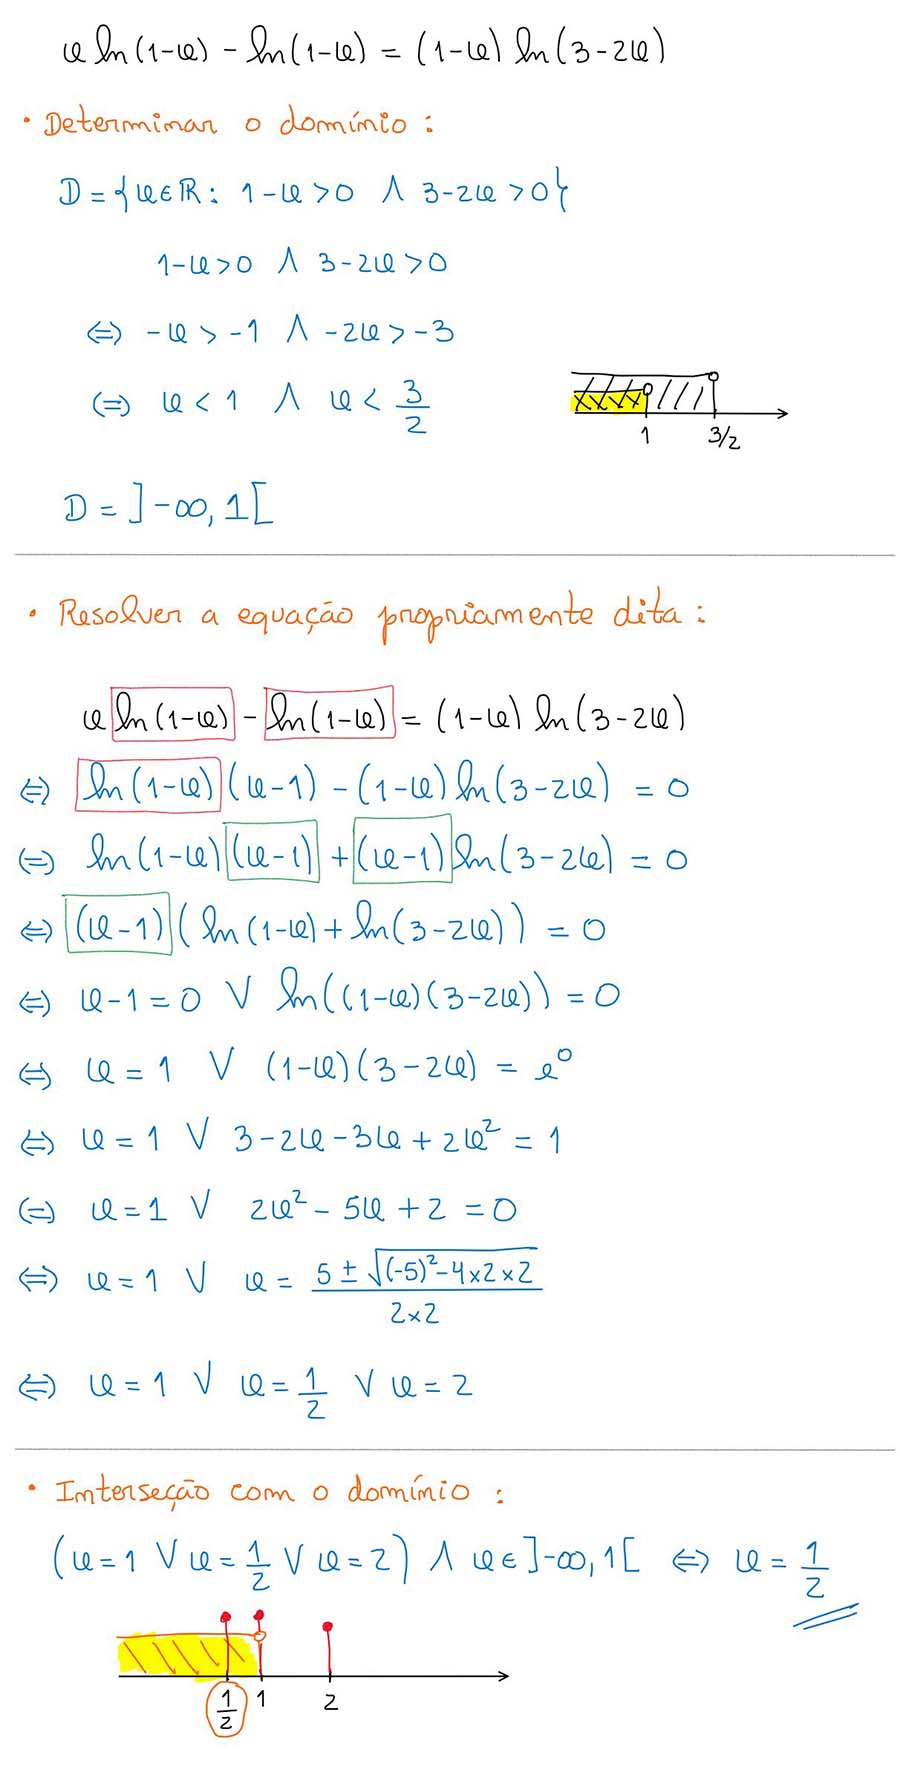 x ln(1-x) - ln(1-x) = (1-x) ln(3-2x)
• Determinar o domínio :
D = {x∈ℝ: 1-x>0 ∧ 3-2x>0}
1-x>0 ∧ 3-2x>0
⇔ -x > -1 ∧ -2x > -3
⇔ x < 1 ∧ x < 3/2
1 3/2
D = ]-∞, 1[
• Resolver a equação propriamente dita :
x ln(1-x) - ln(1-x) = (1-x) ln(3-2x)
⇔ ln(1-x) (x-1) - (1-x) ln(3-2x) = 0
⇔ ln(1-x) (x-1) + (x-1) ln(3-2x) = 0
⇔ (x-1) ( ln(1-x) + ln(3-2x) ) = 0
⇔ x-1 = 0 ∨ ln((1-x)(3-2x)) = 0
⇔ x = 1 ∨ (1-x)(3-2x) = e⁰
⇔ x = 1 ∨ 3-2x-3x+2x² = 1
⇔ x = 1 ∨ 2x² - 5x + 2 = 0
⇔ x = 1 ∨ x = (5 ± √((-5)²-4×2×2))/(2×2)
⇔ x = 1 ∨ x = 1/2 ∨ x = 2
• Interseção com o domínio :
(x=1 ∨ x=1/2 ∨ x=2) ∧ x∈]-∞, 1[ ⇔ x = 1/2
1/2 1 2